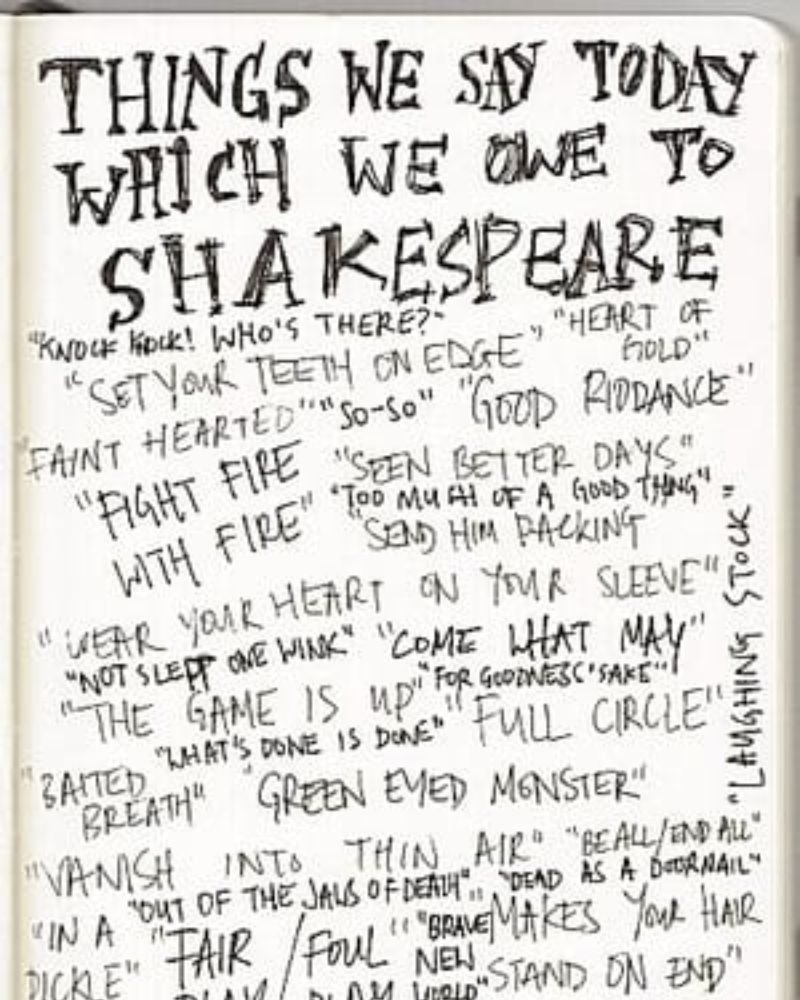 THINGS WE SAY TODAY
WHICH WE OWE TO
SHAKESPEARE
"KNOCK KNOCK! WHO'S THERE?" "HEART OF
GOLD"
"SET YOUR TEETH ON EDGE"
"FAINT HEARTED" "SO-SO" "GOOD RIDDANCE"
"FIGHT FIRE
WITH FIRE"
"SEEN BETTER DAYS"
"TOO MUCH OF A GOOD THING"
"SEND HIM PACKING
"WEAR YOUR HEART ON YOUR SLEEVE"
"NOT SLEPT ONE WINK" "COME WHAT MAY"
"FOR GOODNESS' SAKE"
"THE GAME IS UP" "FULL CIRCLE"
"WHAT'S DONE IS DONE"
"LAUGHING STOCK"
"BAITED
BREATH"
"GREEN EYED MONSTER"
"VANISH INTO THIN AIR" "BE ALL/END ALL"
"OUT OF THE JAWS OF DEATH" "DEAD AS A DOORNAIL"
"IN A
PICKLE"
"FAIR / FOUL
PLAY PLAY
"BRAVE
NEW
WORLD"
"MAKES YOUR HAIR
STAND ON END"